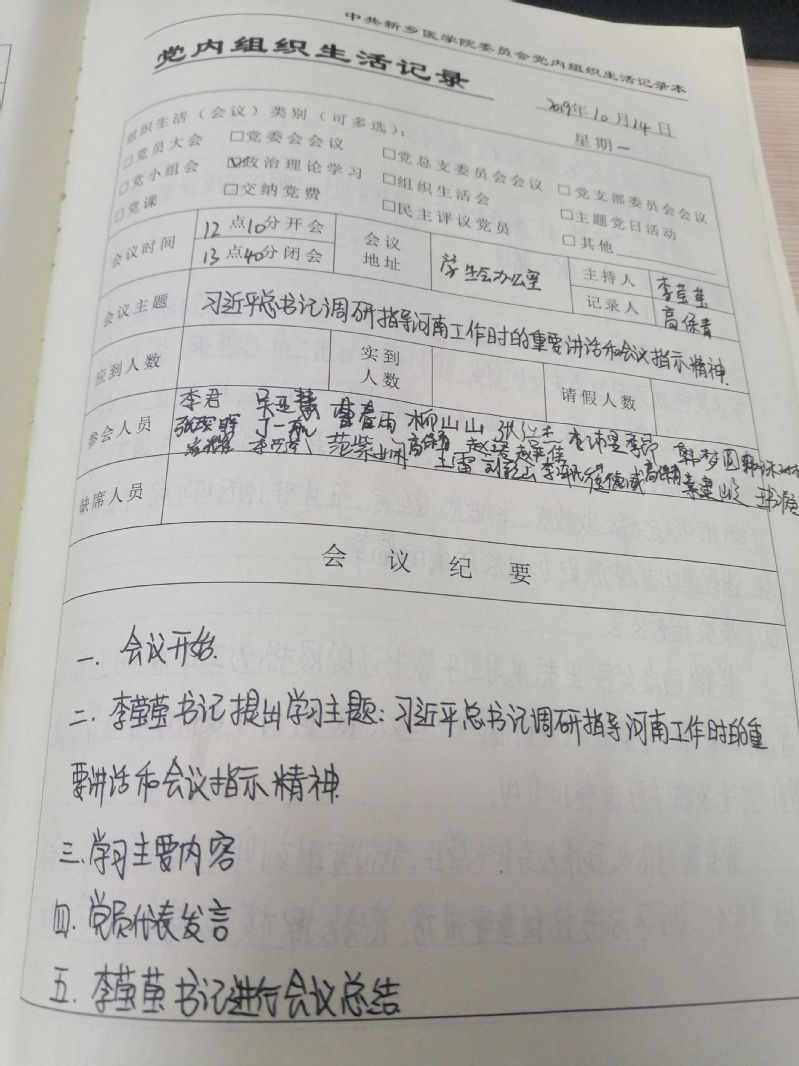 中共新乡医学院委员会党内组织生活记录本
党内组织生活记录
2019年10月14日
星期一
组织生活（会议）类别（可多选）：
□党员大会 □党委会会议 □党总支委员会会议 □党支部委员会会议
□党小组会 ☑政治理论学习 □组织生活会 □主题党日活动
□党课 □交纳党费 □民主评议党员 □其他
会议时间 12点10分开会 13点40分闭会
会议地址 学生会办公室
主持人 李莹莹
记录人 高保青
会议主题 习近平总书记调研指导河南工作时的重要讲话和会议指示精神.
应到人数 实到人数 请假人数
参会人员 李君 吴亚慧 曹春雨 柳山山 韩梦圆
丁一帆 范紫 高保青 王雷
缺席人员
会议纪要
一. 会议开始.
二. 李莹莹书记提出学习主题：习近平总书记调研指导河南工作时的重
要讲话和会议指示精神.
三. 学习主要内容
四. 党员代表发言
五. 李莹莹书记进行会议总结